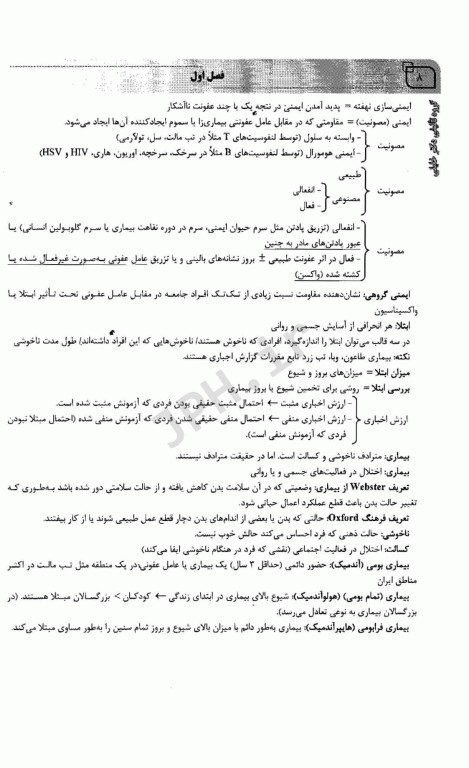 ۸
فصل اول
گروه تألیفی دکتر خلیلی
ایمنی‌سازی نهفته = پدید آمدن ایمنی در نتیجه یک یا چند عفونت ناآشکار
ایمنی (مصونیت) = مقاومتی که در مقابل عامل عفونتی بیماری‌زا یا سموم ایجادکننده آن‌ها ایجاد می‌شود.
مصونیت
- وابسته به سلول (توسط لنفوسیت‌های T مثلاً در تب مالت، سل، تولارمی)
- ایمنی هومورال (توسط لنفوسیت‌های B مثلاً در سرخک، سرخچه، اوریون، هاری، HIV و HSV)
مصونیت
طبیعی
مصنوعی
- انفعالی
- فعال
مصونیت
- انفعالی (تزریق پادتن مثل سرم حیوان ایمنی، سرم در دوره نقاهت بیماری یا سرم گلوبولین انسانی) یا
عبور پادتن‌های مادر به جنین
- فعال در اثر عفونت طبیعی ± بروز نشانه‌های بالینی و یا تزریق عامل عفونی به‌صورت غیرفعال شده یا
کشته شده (واکسن)
ایمنی گروهی: نشان‌دهنده مقاومت نسبت زیادی از تک‌تک افراد جامعه در مقابل عامل عفونی تحت تأثیر ابتلا یا
واکسیناسیون
ابتلا: هر انحرافی از آسایش جسمی و روانی
در سه قالب می‌توان ابتلا را اندازه‌گیرد، افرادی که ناخوش هستند/ ناخوش‌هایی که این افراد داشته‌اند/ طول مدت ناخوشی
نکته: بیماری طاعون، وبا، تب زرد تابع مقررات گزارش اجباری هستند.
میزان ابتلا = میزان‌های بروز و شیوع
بررسی ابتلا = روشی برای تخمین شیوع یا بروز بیماری
ارزش اخباری
- ارزش اخباری مثبت ← احتمال مثبت حقیقی بودن فردی که آزمونش مثبت شده است.
- ارزش اخباری منفی ← احتمال منفی حقیقی شدن فردی که آزمونش منفی شده (احتمال مبتلا نبودن
فردی که آزمونش منفی است).
بیماری: مترادف ناخوشی و کسالت است. اما در حقیقت مترادف نیستند.
بیماری: اختلال در فعالیت‌های جسمی و یا روانی
تعریف Webster از بیماری: وضعیتی که در آن سلامت بدن کاهش یافته و از حالت سلامتی دور شده باشد به‌طوری که
تغییر حالت بدن باعث قطع عملکرد اعمال حیاتی شود.
تعریف فرهنگ Oxford: حالتی که بدن یا بعضی از اندام‌های بدن دچار قطع عمل طبیعی شوند یا از کار بیفتند.
ناخوشی: حالت ذهنی که فرد احساس می‌کند حالش خوب نیست.
کسالت: اختلال در فعالیت اجتماعی (نقشی که فرد در هنگام ناخوشی ایفا می‌کند)
بیماری بومی (آندمیک): حضور دائمی (حداقل ۳ سال) یک بیماری یا عامل عفونی در یک منطقه مثل تب مالت در اکثر
مناطق ایران
بیماری (تمام بومی) (هولوآندمیک): شیوع بالای بیماری در ابتدای زندگی ← کودکان > بزرگسالان مبتلا هستند. (در
بزرگسالان بیماری به نوعی تعادل می‌رسد).
بیماری فرابومی (هایپرآندمیک): بیماری به‌طور دائم با میزان بالای شیوع و بروز تمام سنین را به‌طور مساوی مبتلا می‌کند.